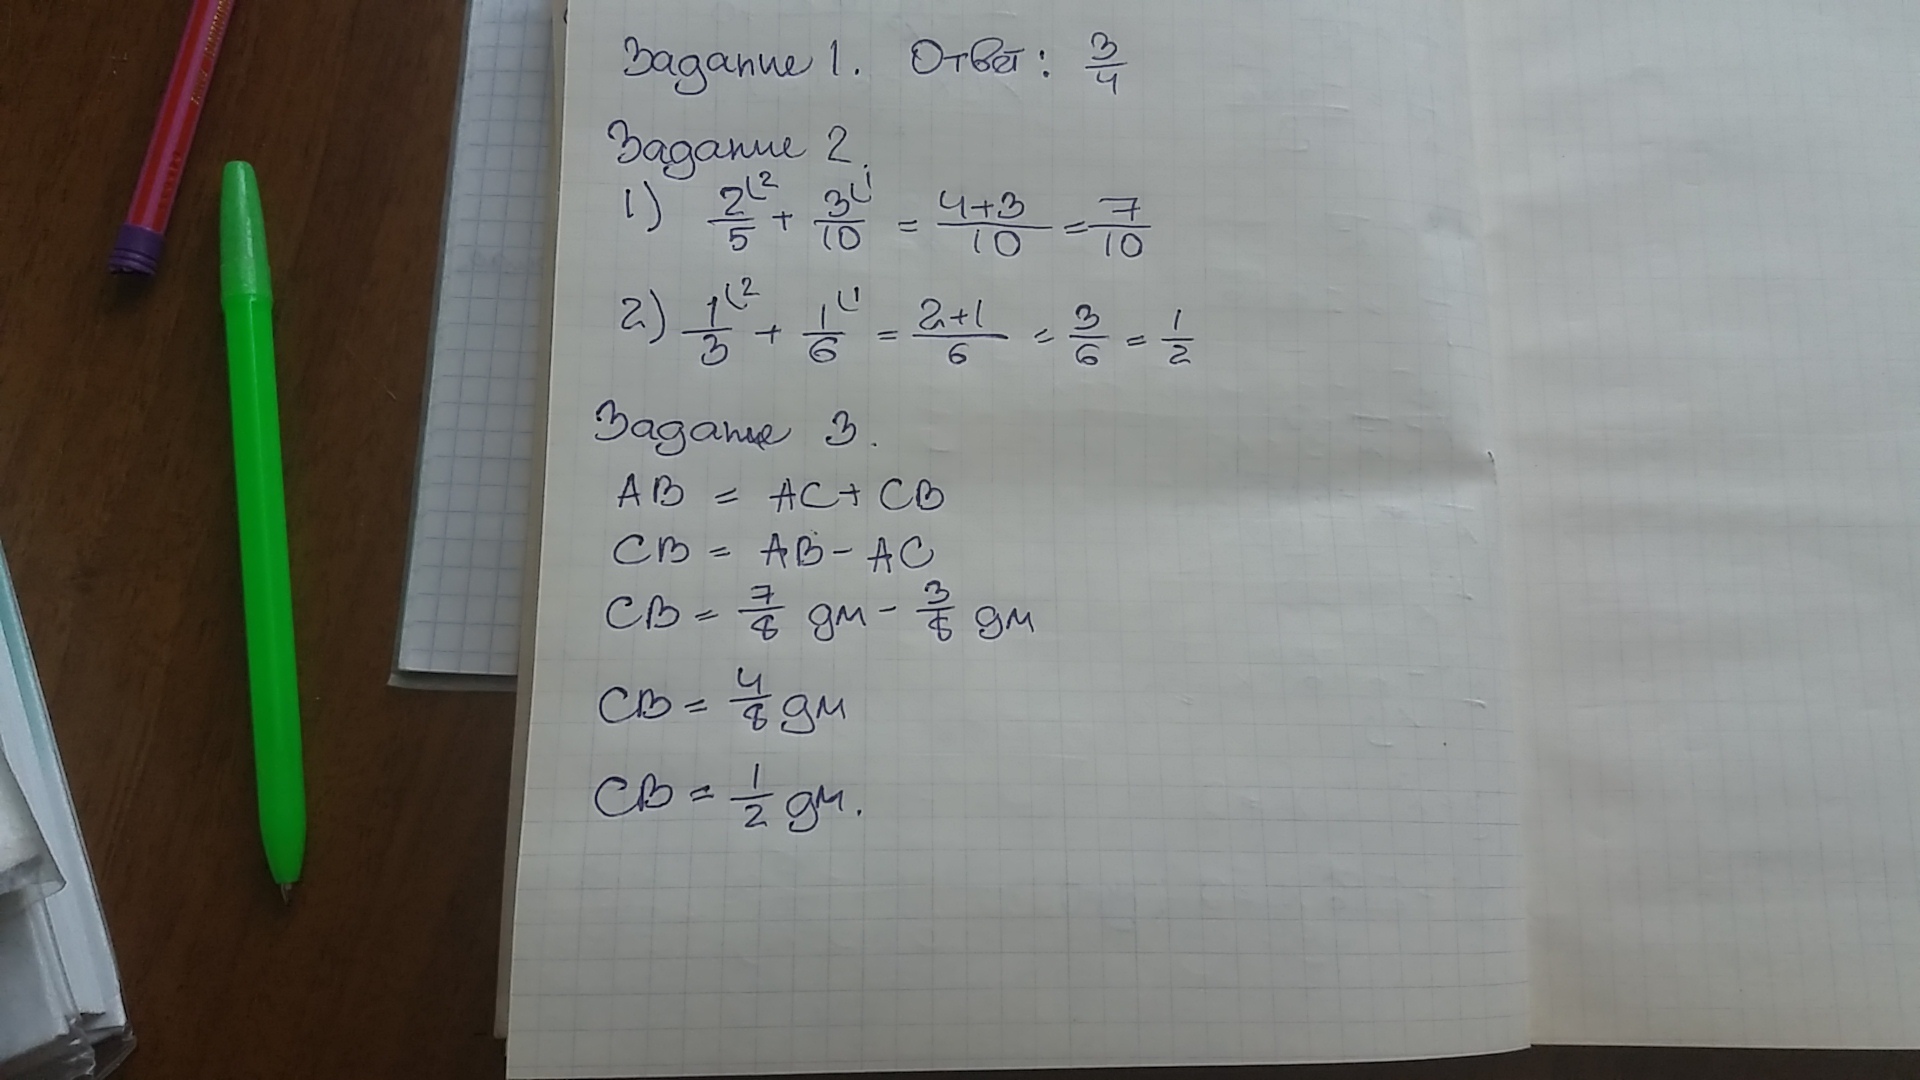 Задание 1. Ответ: 3/4
Задание 2.
1) 2/5 (2 + 3/10 (1 = 4+3/10 = 7/10
2) 1/3 (2 + 1/6 (1 = 2+1/6 = 3/6 = 1/2
Задание 3.
AB = AC + CB
CB = AB - AC
CB = 7/8 дм - 3/8 дм
CB = 4/8 дм
CB = 1/2 дм.